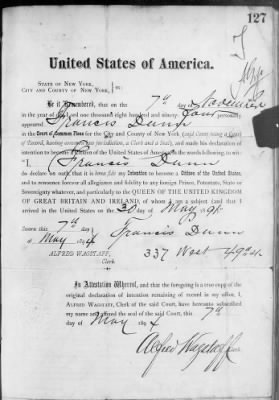 127
United States of America.
STATE OF NEW YORK,
CITY AND COUNTY OF NEW YORK, } ss:
Be it Remembered, that on the 7th day of November
in the year of our Lord one thousand eight hundred and ninety four personally
appeared Francis Dunn
in the Court of Common Pleas for the City and County of New York (said Court being a Court
of Record, having common law jurisdiction, a Clerk and a Seal), and made his declaration
of intention to become Citizen of the United States of America in the words following, to wit:
"I, Francis Dunn
do declare on oath, that it is bona fide my Intention to become a Citizen of the United States,
and to renounce forever all allegiance and fidelity to any foreign Prince, Potentate, State or
Sovereignty whatever, and particularly to the QUEEN OF THE UNITED KINGDOM
OF GREAT BRITAIN AND IRELAND, of whom I am a subject (and that I
arrived in the United States on the 30 day of May
Sworn this 7th day } Francis Dunn
of May 1894
ALFRED WAGSTAFF, 337 West 49 st
Clerk.
In Attestation Whereof, and that the foregoing is a true copy of the
original declaration of intention remaining of record in my office, I,
ALFRED WAGSTAFF, Clerk of the said Court, have hereunto subscribed
my name and affixed the seal of the said Court, this 7th
day of May 1894
Alfred Wagstaff Clerk.